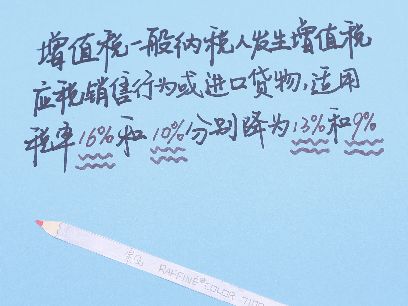 增值税一般纳税人发生增值税
应税销售行为或进口货物,适用
税率16%和10%分别降为13%和9%
RAFFINÉ COLOR 7100